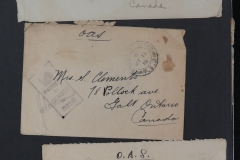 Canada
OAS
Mrs. S. Clements
78 Pollock ave
Galt Ontario
Canada
O.A.S.